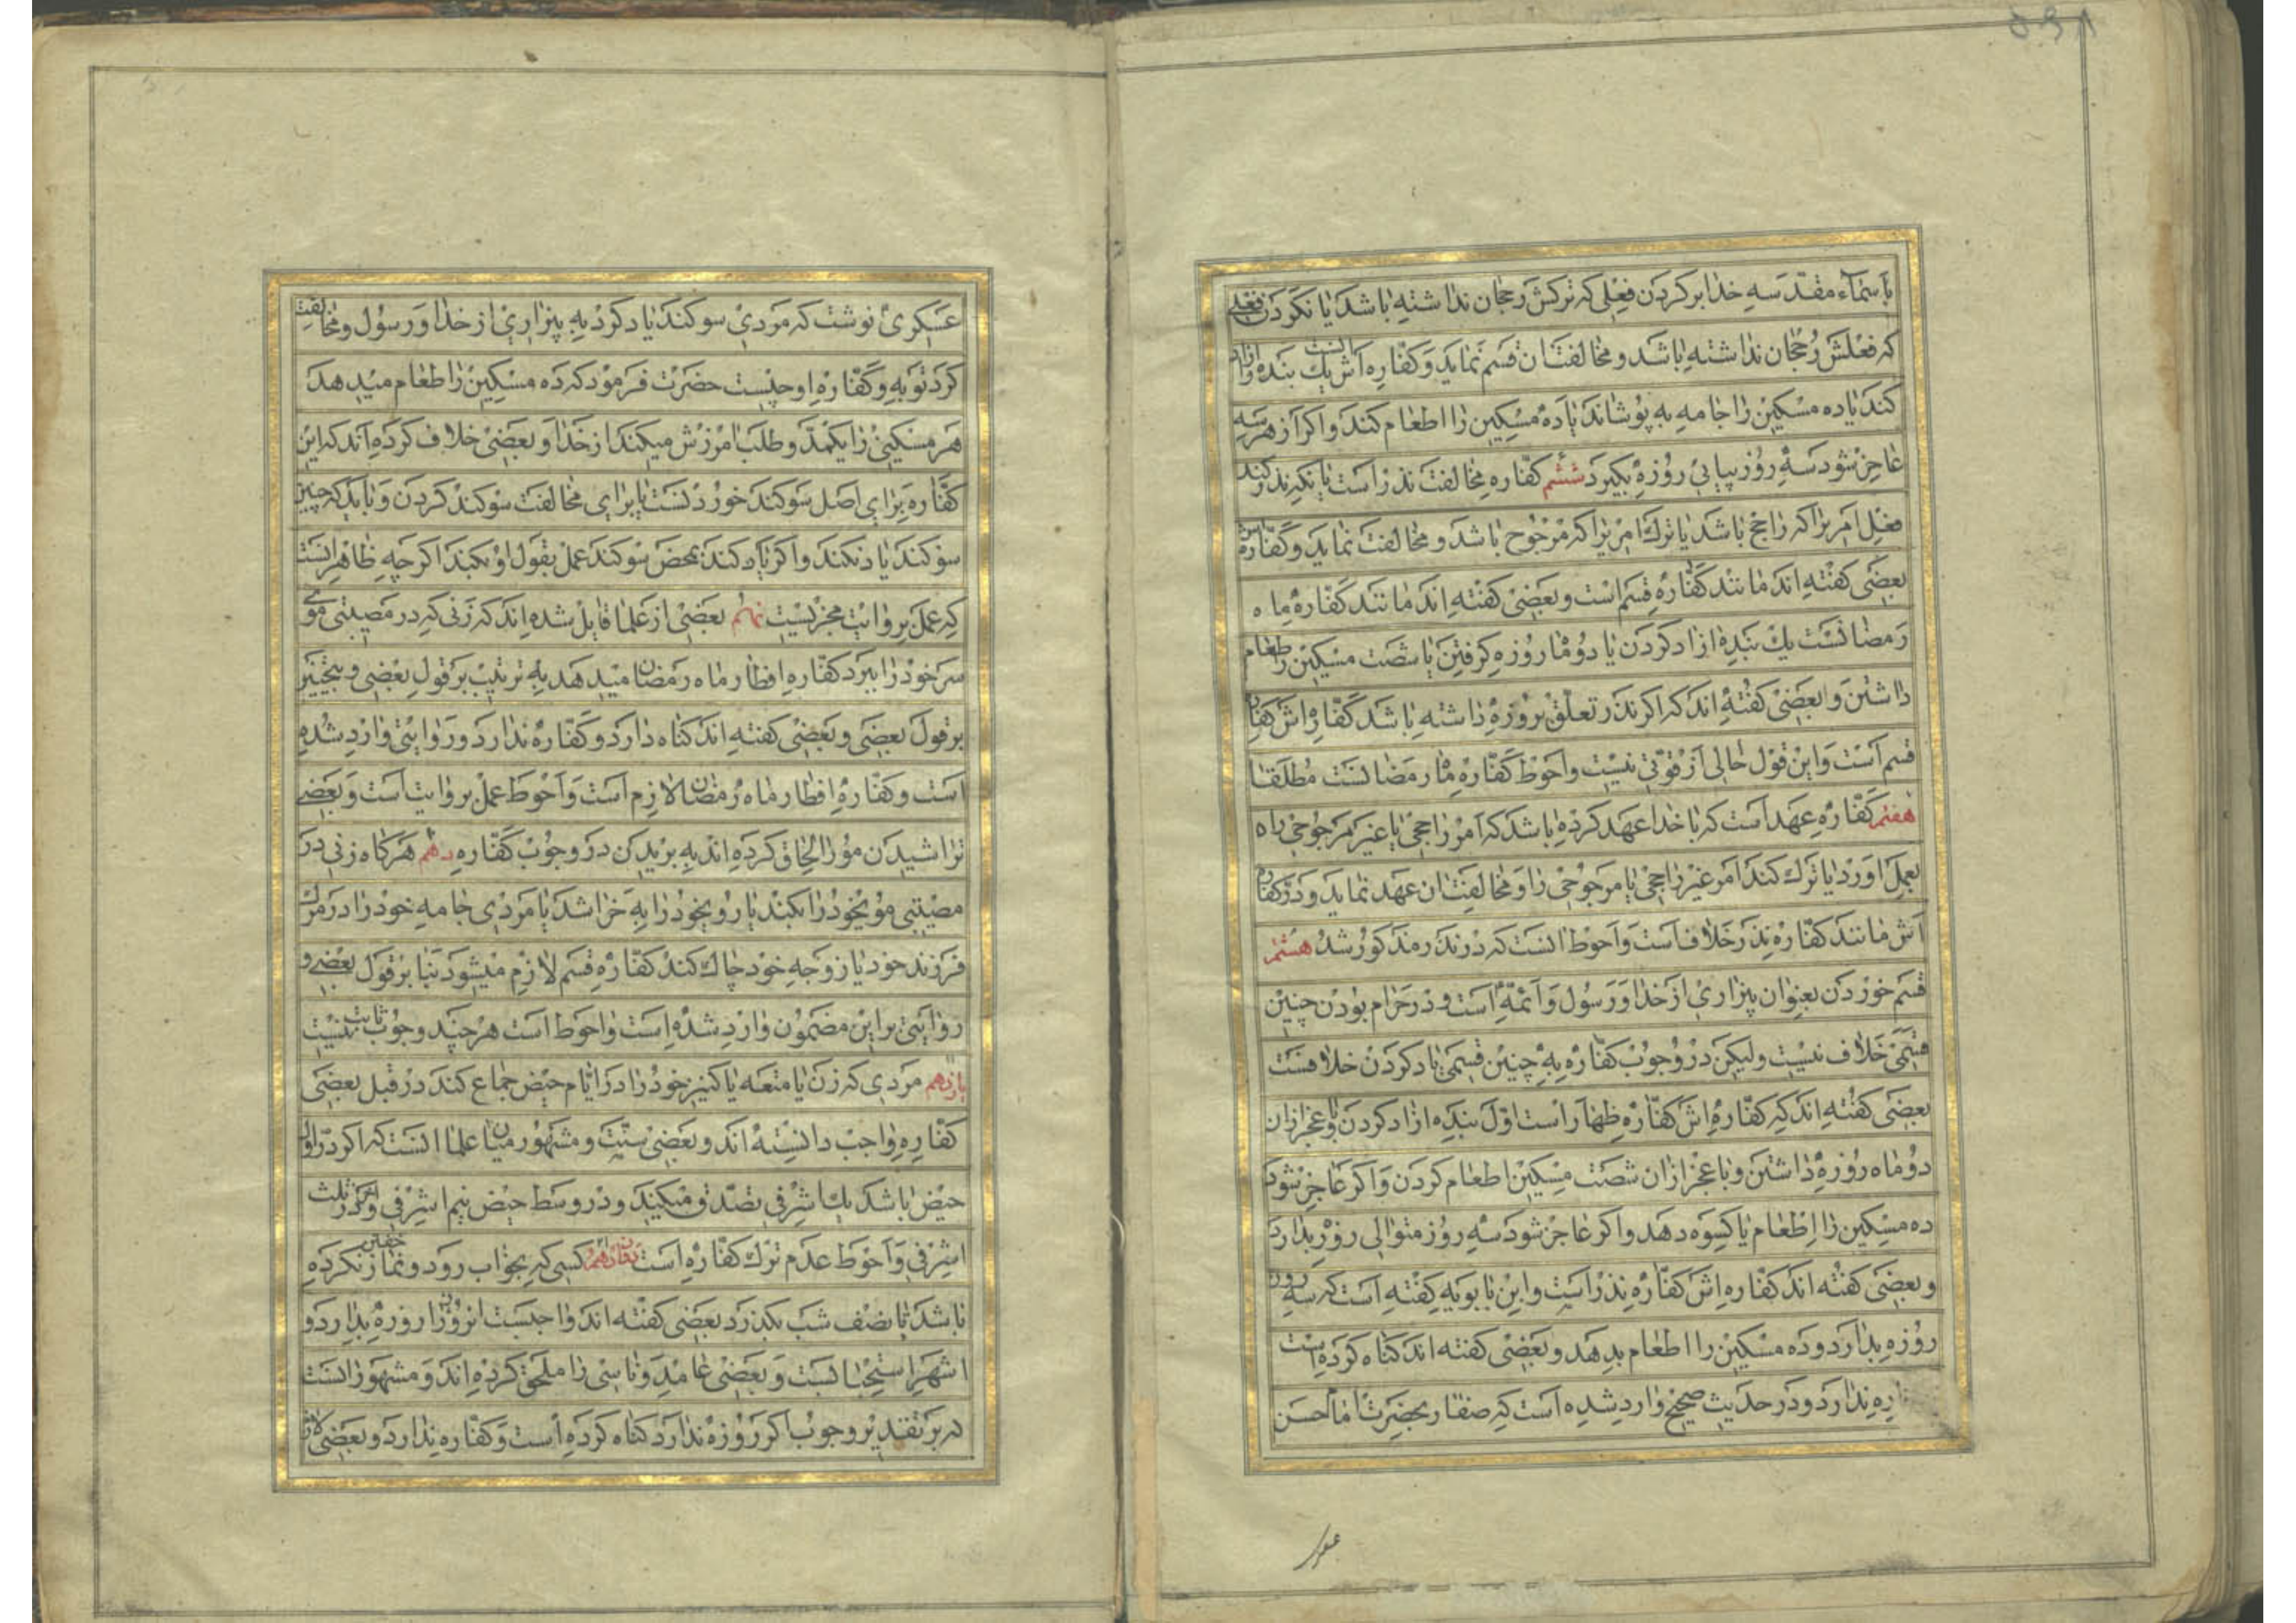 باسماء مقدسه خدا بر کردن فعلی که ترکش رجحان نداشته باشد یا نکردن فعلی
که فعلش رجحان نداشته باشد و مخالفت ان قسم نماید و کفاره اش انست یك بنده ازاد
کند یا ده مسکین را جامه به پوشاند یا ده مسکین را اطعام کند و اکر از هر سه
عاجز شود سه روز پیاپی روزه بکیرد ششم کفاره مخالفت نذر است یا نکه نذر کند
فعل امریرا که راجح باشد یا ترك امریرا که مرجوح باشد و مخالفت نماید و کفاره اش
بعضی کفته اند مانند کفاره قسم است و بعضی کفته اند مانند کفاره ماه
رمضانست یك بنده ازاد کردن یا دو ماه روزه کرفتن یا شصت مسکین را طعام
داشتن و بعضی کفته اند که اکر نذر تعلق بروزه داشته باشد کفاره اش کفاره
قسم است و این قول خالی از قوتی نیست و احوط کفاره ماه رمضانست مطلقا
هفتم کفاره عهد است که با خدا عهد کرده باشد که امر راجحی یا غیر مرجوحی راه
بعمل اورد یا ترك کند امر غیر راجحی یا مرجوحی را و مخالفت ان عهد نماید و در کفاره
اش مانند کفاره نذر خلاف است و احوط انست که در نذر مذکور شد هشتم
قسم خوردن بعنوان بیزاری از خدا و رسول و ائمه است و در حرام بودن چنین
قسمی خلاف نیست ولیکن در وجوب کفاره به چنین قسمی یاد کردن خلافست
بعضی کفته اند که کفاره اش کفاره ظهار است اول بنده ازاد کردن و با عجز ازان
دو ماه روزه داشتن و با عجز ازان شصت مسکین اطعام کردن و اکر عاجز شود
ده مسکین را اطعام یا کسوه دهد و اکر عاجز شود سه روز متوالی روزه بدارد
و بعضی کفته اند کفاره اش کفاره نذر است و ابن بابویه کفته است که سه روز
روزه بدارد و ده مسکین را اطعام بدهد و بعضی کفته اند کناه کرده است
اره ندارد و در حدیث صحیح وارد شده است که صفار بحضرت امام حسن
عسکری
عسکری نوشت که مردی سوکند یاد کرد به بیزاری از خدا و رسول و مخالفت
کرد توبه و کفاره او چیست حضرت فرمود که ده مسکین را طعام میدهد
هر مسکینی را یکمد و طلب امرزش میکند از خدا و بعضی خلاف کرده اند که این
کفاره برای اصل سوکند خوردنست یا برای مخالفت سوکند کردن و باید که چنین
سوکند یاد نکند و اکر یاد کند بمحض سوکند عمل بقول او نکند اکر چه ظاهر انست
که عمل بروایت مجزیست نهم بعضی از علما قایل شده اند که زنی که در مصیبتی موی
سر خود را ببرد کفاره افطار ماه رمضان میدهد به ترتیب بر قول بعضی و بتخییر
بر قول بعضی و بعضی کفته اند کناه دارد و کفاره ندارد و روایتی وارد شده
است و کفاره افطار ماه رمضان لازم است و احوط عمل بروایت است و بعضی
تراشیدن مو را الحاق کرده اند به بریدن در وجوب کفاره دهم هرکاه زنی در
مصیبتی موی خود را بکند یا روی خود را به خراشد یا مردی جامه خود را در مرك
فرزند خود یا زوجه خود چاك کند کفاره قسم لازم میشود بنا بر قول بعضی و
روایتی بر این مضمون وارد شده است و احوط است هر چند وجوب ثابت نیست
یازدهم مردی که زن یا متعه یا کنیز خود را در ایام حیض جماع کند در قبل بعضی
کفاره واجب دانسته اند و بعضی سنت و مشهور میان علما انست که اکر در اول
حیض باشد یك اشرفی تصدق میکند و در وسط حیض نیم اشرفی و در اخر ثلث
اشرفی و احوط عدم ترك کفاره است دوازدهم کسی که بخواب رود و نماز خفتن نکرده
باشد تا نصف شب بکذرد بعضی کفته اند واجبست انروز را روزه بدارد و
اشهر استحبابست و بعضی عامد و ناسی را ملحق کرده اند و مشهور انست
که بر تقدیر وجوب اکر روزه ندارد کناه کرده است و کفاره ندارد و بعضی